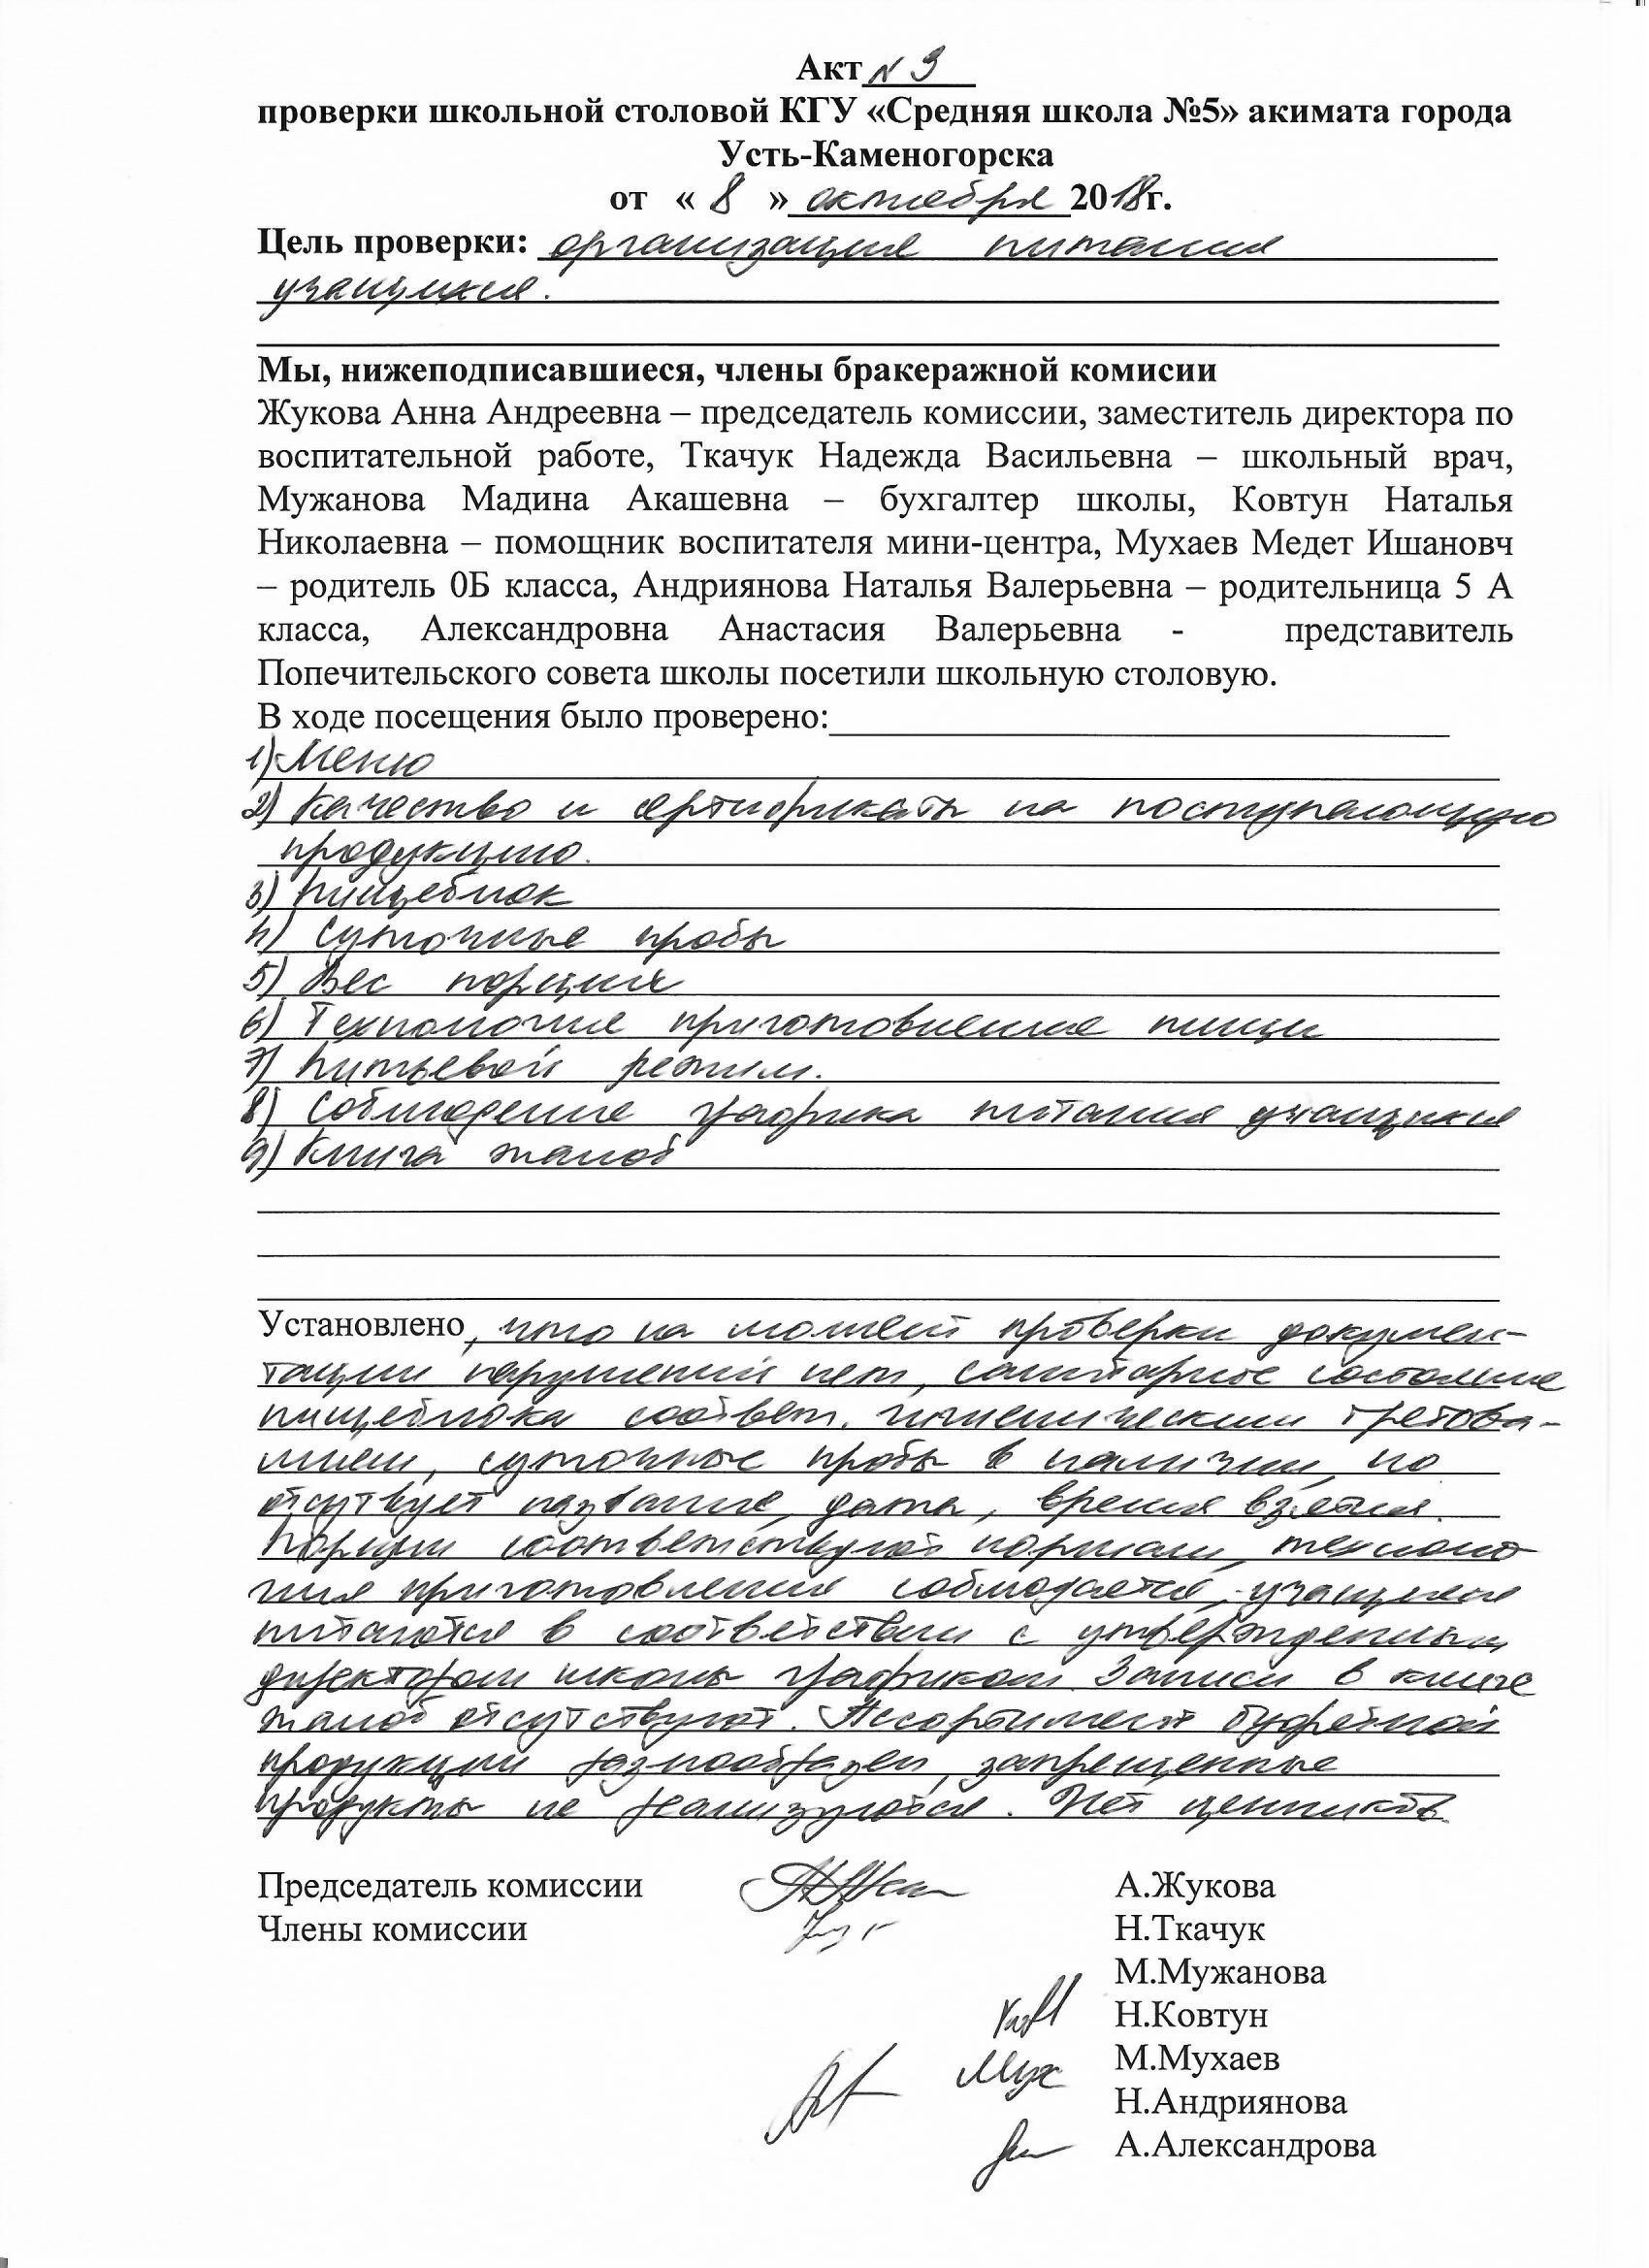 Акт № 3
проверки школьной столовой КГУ «Средняя школа №5» акимата города
Усть-Каменогорска
от « 8 » октября 2018г.
Цель проверки: организация питания
учащихся.
Мы, нижеподписавшиеся, члены бракеражной комисии
Жукова Анна Андреевна – председатель комиссии, заместитель директора по
воспитательной работе, Ткачук Надежда Васильевна – школьный врач,
Мужанова Мадина Акашевна – бухгалтер школы, Ковтун Наталья
Николаевна – помощник воспитателя мини-центра, Мухаев Медет Ишановч
– родитель 0Б класса, Андриянова Наталья Валерьевна – родительница 5 А
класса, Александровна Анастасия Валерьевна - представитель
Попечительского совета школы посетили школьную столовую.
В ходе посещения было проверено:
1) Меню
2) Качество и сертификаты на поступающую
продукцию.
3) Пищеблок
4) Суточные пробы
5) Вес порций
6) Технология приготовления пищи
7) Питьевой режим.
8) Соблюдение графика питания учащихся
9) Книга жалоб
Установлено, что на момент проверки докумен-
тации нарушений нет, санитарное состояние
пищеблока соответ. гигиеническим требова-
ниям, суточные пробы в наличии, но
отсутвует название, дата, время взятия.
Порции соответствуют нормам, техноло-
гия приготовления соблюдается, учащиеся
питаются в соответствии с утвержденным
директором школы графиком. Записи в книге
жалоб отсутствуют. Ассортимент буфетной
продукции разнообразен, запрещенные
продукты не реализуются. Нет ценников.
Председатель комиссии А.Жукова
Члены комиссии Н.Ткачук
М.Мужанова
Н.Ковтун
Мух М.Мухаев
Н.Андриянова
А.Александрова